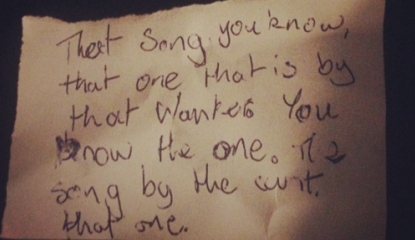 That song, you know,
that one that is by
that wanker. You
know the one. The
song by the cunt.
that one.